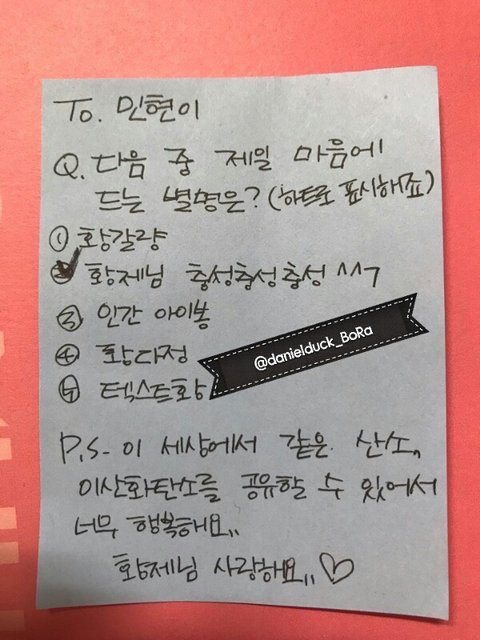 To. 민현이
Q. 다음 중 제일 마음에
드는 별명은? (하트로 표시해죠)
① 황갈량
② 황제님 충성충성충성 ^^7
③ 인간 아이봉
④ 황다정
⑤ 텍스트황
@danielduck_BoRa
P.S- 이 세상에서 같은 산소,
이산화탄소를 공유할 수 있어서
너무 행복해요..
황제님 사랑해요.. ♡